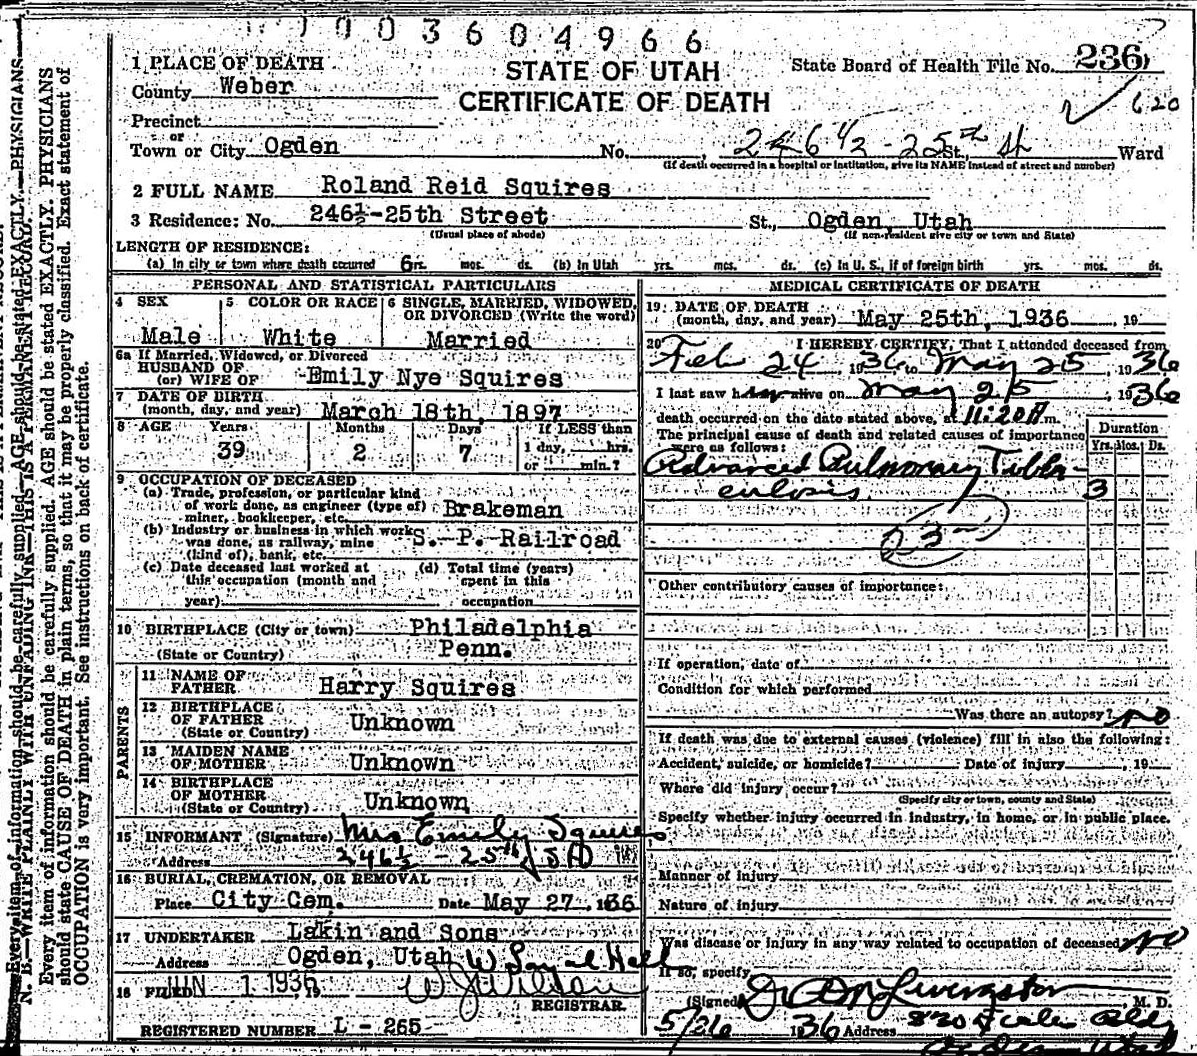 1003604966
STATE OF UTAH
CERTIFICATE OF DEATH
State Board of Health File No. 236
620
1 PLACE OF DEATH
County Weber
Precinct
or
Town or City Ogden No. 246 1/2 - 25th St., Ward
(If death occurred in a hospital or institution, give its NAME instead of street and number)
2 FULL NAME Roland Reid Squires
3 Residence: No. 246½-25th Street St., Ogden, Utah
(Usual place of abode) (If non-resident give city or town and State)
LENGTH OF RESIDENCE:
(a) In city or town where death occurred 6 yrs. mos. ds. (b) In Utah yrs. mos. ds. (c) In U. S., if of foreign birth yrs. mos. ds.
PERSONAL AND STATISTICAL PARTICULARS
4 SEX 5 COLOR OR RACE 6 SINGLE, MARRIED, WIDOWED,
OR DIVORCED (Write the word)
Male White Married
6a If Married, Widowed, or Divorced
HUSBAND OF
(or) WIFE OF Emily Nye Squires
7 DATE OF BIRTH
(month, day, and year) March 18th, 1897
8 AGE Years Months Days If LESS than
39 2 7 1 day, hrs.
or min.?
9 OCCUPATION OF DECEASED
(a) Trade, profession, or particular kind
of work done, as engineer (type of)
miner, bookkeeper, etc. Brakeman
(b) Industry or business in which work
was done, as railway, mine
(kind of), bank, etc. S. P. Railroad
(c) Date deceased last worked at (d) Total time (years)
this occupation (month and spent in this
year) occupation
10 BIRTHPLACE (City or town) Philadelphia
(State or Country) Penn.
PARENTS
11 NAME OF
FATHER Harry Squires
12 BIRTHPLACE
OF FATHER Unknown
(State or Country)
13 MAIDEN NAME
OF MOTHER Unknown
14 BIRTHPLACE
OF MOTHER
(State or Country) Unknown
15 INFORMANT (Signature) Mrs Emily Squires
Address 246½ - 25th St
16 BURIAL, CREMATION, OR REMOVAL
Place City Cem. Date May 27, 1936
17 UNDERTAKER Lakin and Sons
Address Ogden, Utah
18 FILED JUN 1 1936, 19
REGISTRAR.
REGISTERED NUMBER L - 265
MEDICAL CERTIFICATE OF DEATH
19 DATE OF DEATH
(month, day, and year) May 25th, 1936, 19
20 I HEREBY CERTIFY, That I attended deceased from
Feb 24, 1936 to May 25, 1936
I last saw him alive on May 25, 1936
death occurred on the date stated above, at 11:20A m.
The principal cause of death and related causes of importance
were as follows:
Duration
Yrs. Mos. Ds.
Advanced Pulmonary Tuber-
culosis 3
23
Other contributory causes of importance:
If operation, date of
Condition for which performed
Was there an autopsy? No
If death was due to external causes (violence) fill in also the following:
Accident, suicide, or homicide? Date of injury, 19
Where did injury occur?
(Specify city or town, county and State)
Specify whether injury occurred in industry, in home, or in public place.
Manner of injury
Nature of injury
Was disease or injury in any way related to occupation of deceased No
If so, specify
(Signed) Livingston M. D.
5/26 1936 Address 830 Bldg
Ogden Utah
N. B.—WRITE PLAINLY WITH UNFADING INK—THIS IS A PERMANENT RECORD.
Every item of information should be carefully supplied. AGE should be stated EXACTLY. PHYSICIANS
should state CAUSE OF DEATH in plain terms, so that it may be properly classified. Exact statement of
OCCUPATION is very important. See instructions on back of certificate.